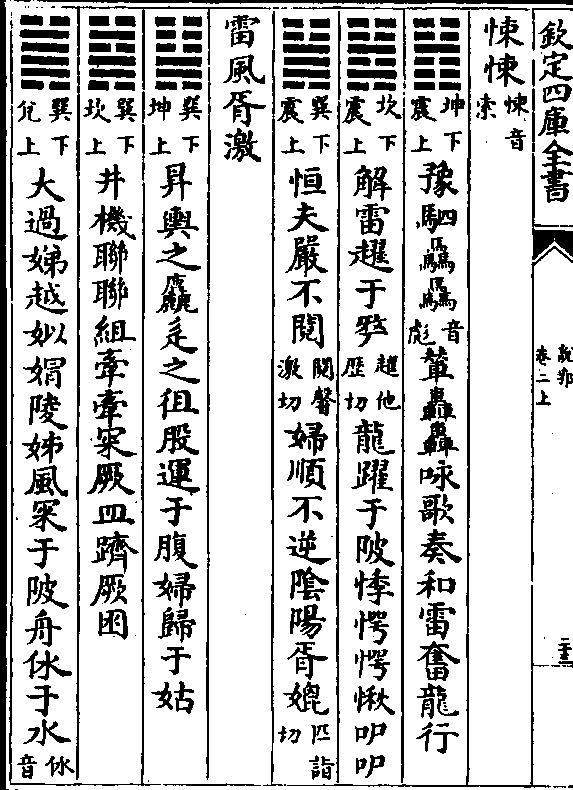 欽定四庫全書
卷二上
悚悚悚音
索
坤下
震上豫馹驫驫音
彪輦轟轟咏歌奏和雷奮龍行
坎下
震上解雷趯于趯他
歷切龍躍于陂悸愕愕愀吅吅
巽下
震上恒夫嚴不閱閱馨
激切婦順不逆陰陽胥媲匹詣
切
雷風胥激
巽下
坤上昇輿之麤辵之徂股運于腹婦歸于姑
巽下
坎上井機聯聯組牽牽罙厥皿躋厥困
巽下
兌上大過娣越姒媦陵姊風罙于陂舟㲻于水㲻
音